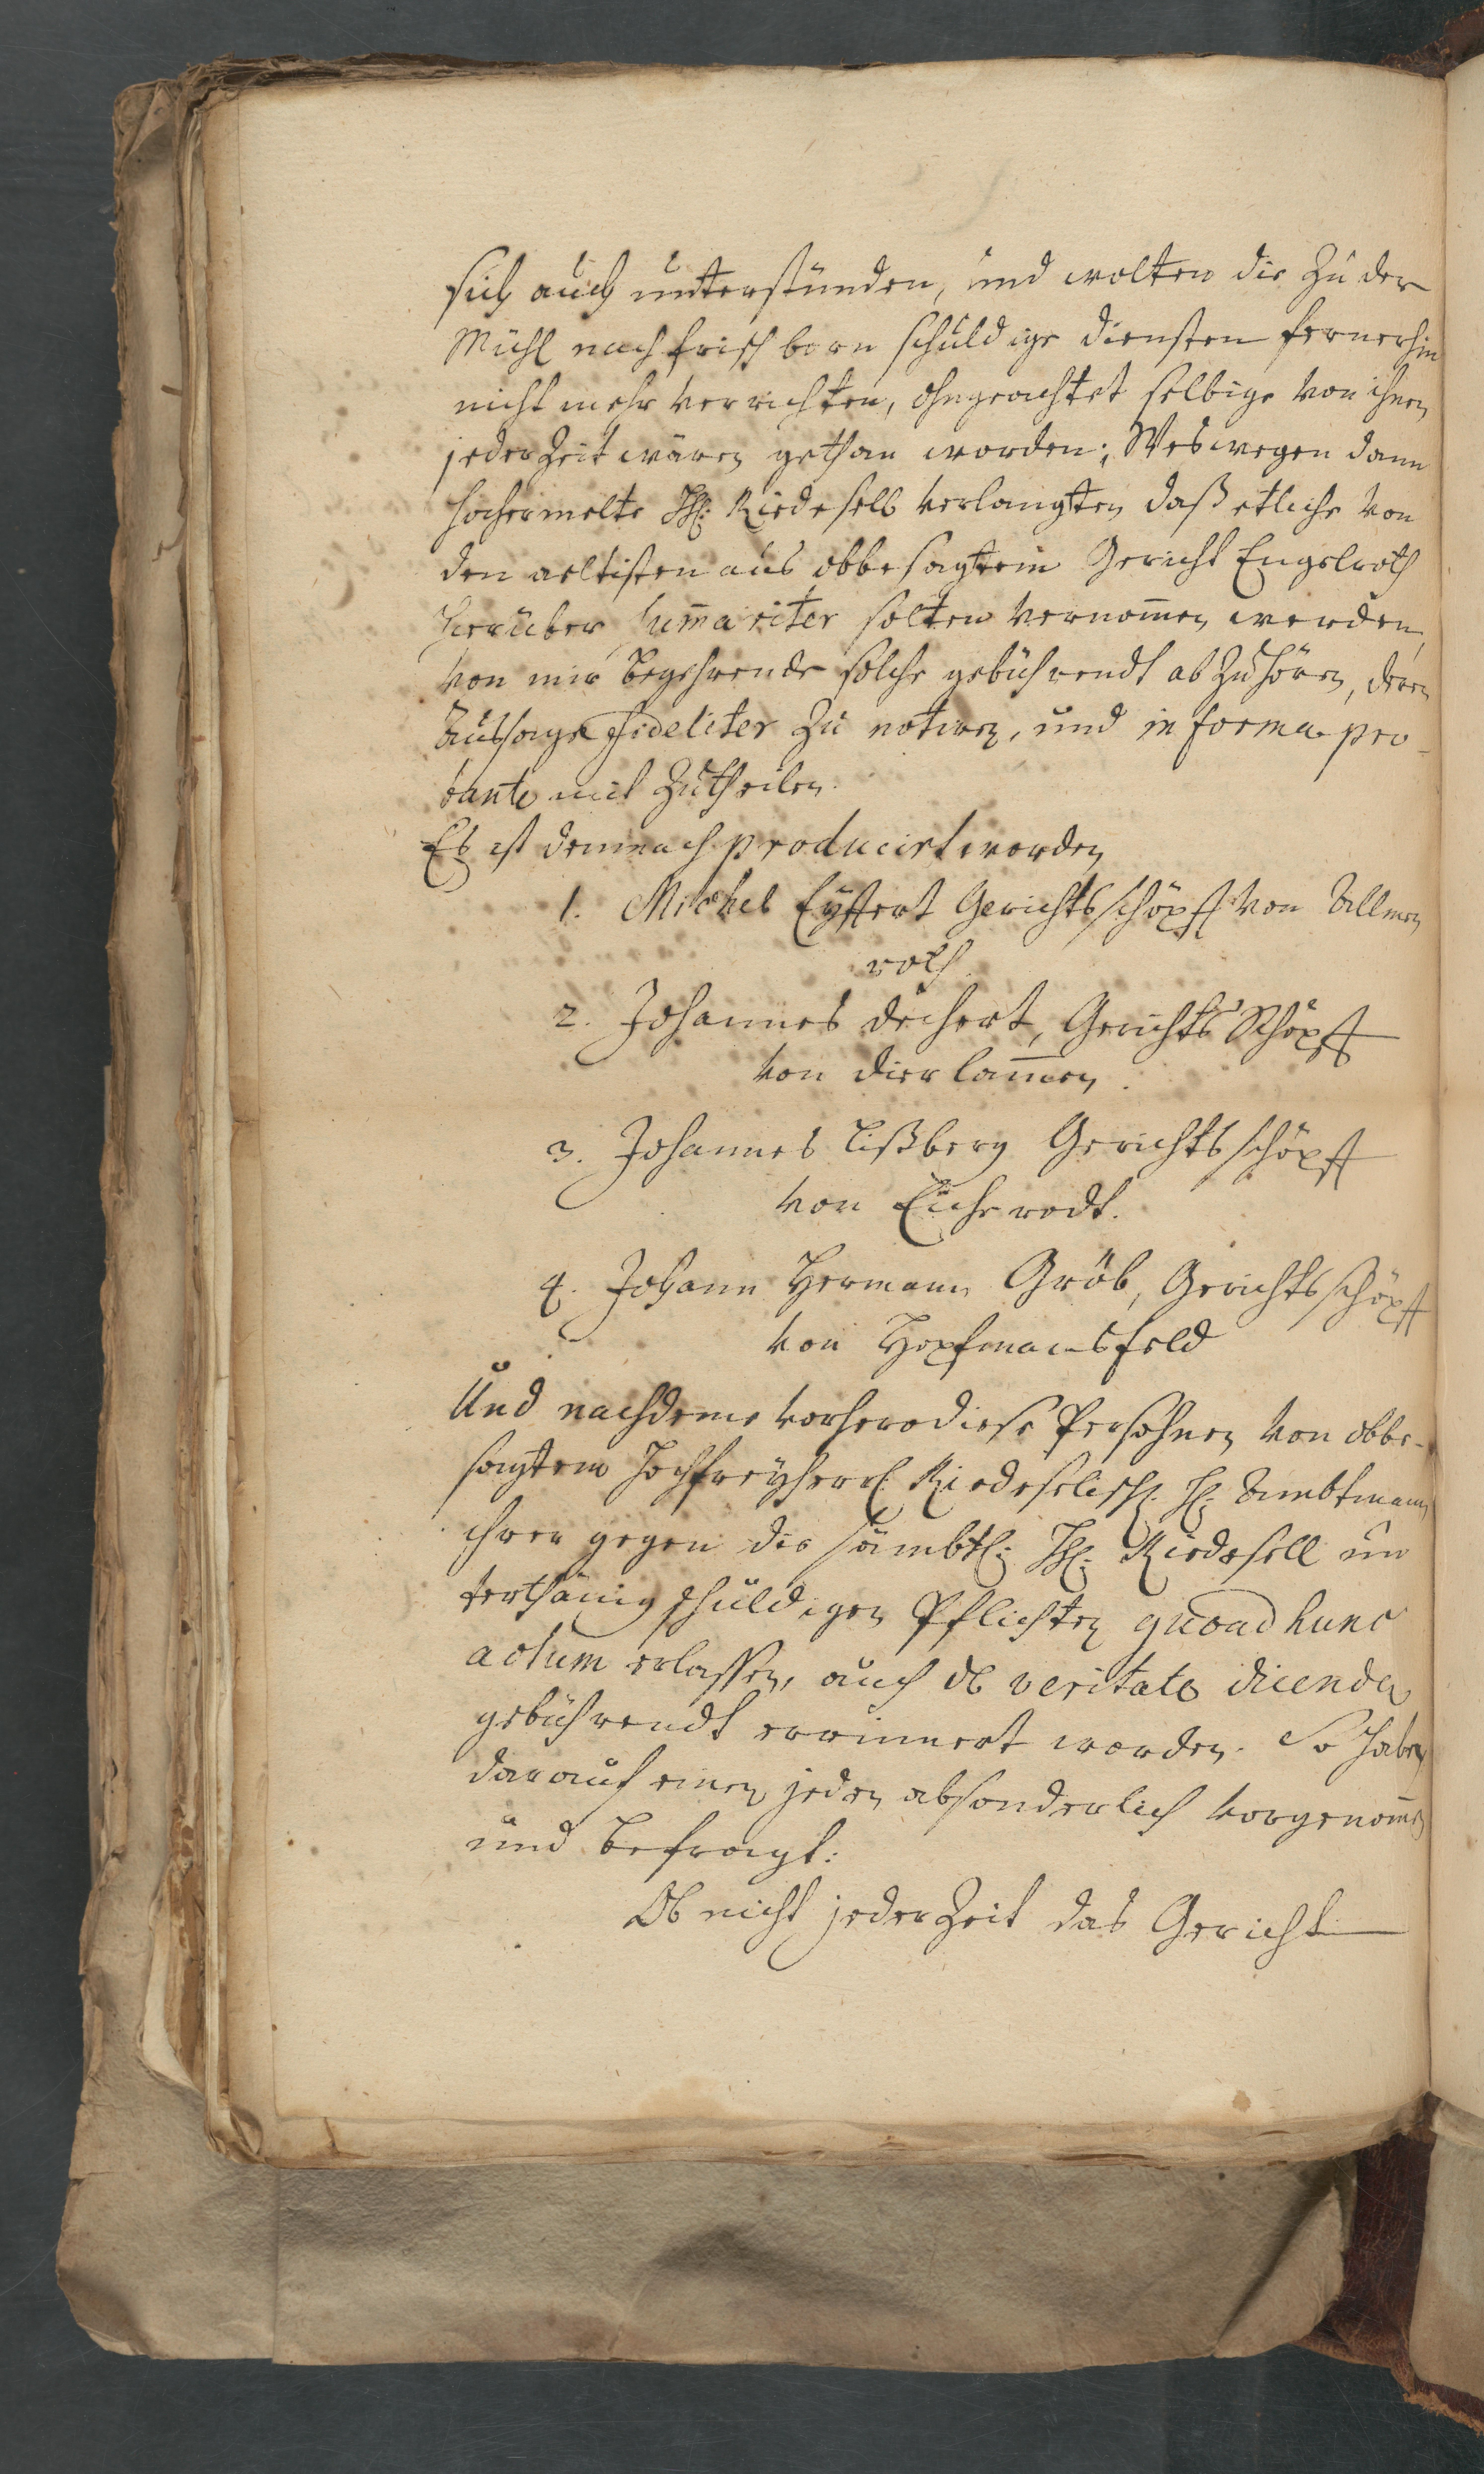 sich auch unterstünden, und wolten die zu der
Mühl nach frischborn schuldige diensten fernerhin
nicht mehr verrichten, ohngeachtet selbige von ihnen
jederzeit wären gethan worden; Weswegen dann
hochermelte HH: Riedesell verlangten, daß etliche von
den aeltisten aus obbesagtem Gericht Engelroth
hierüber sum̄ariter solten vernom̄en werden,
von mir begehrende solche gebührendt abzuhören, deren
Aussage fideliter zu notiren, und in forma pro-
bante mit zutheilen.
Es ist demnach producirt worden
1. Michel Eyffert Gerichtsschöpff von Allmen
roth
2. Johannes dechert, Gerichts Schöpff
von dierlam̄en.
3. Johannes Lißberg Gerichtsschöpff
von Eicherodt.
4. Johann Hermann Gröb, Gerichtsschöpff
von Hopfmansfeld
Und nachdeme vorhero diese Persohnen von obbe-
sagtem Hochfreyherrl. Riedeselisch. H. Ambtmann
ihrer gegen die sämbtl: HH: Riedesell un
terthänig schuldigen Pflichten quoad hunc
actum erlassen, auch de veritate dicenda
gebührendt erinnert worden. So haben
darauf einen jeden absonderlich vorgenom̄en
und befragt:
Ob nicht jederzeit das Gericht